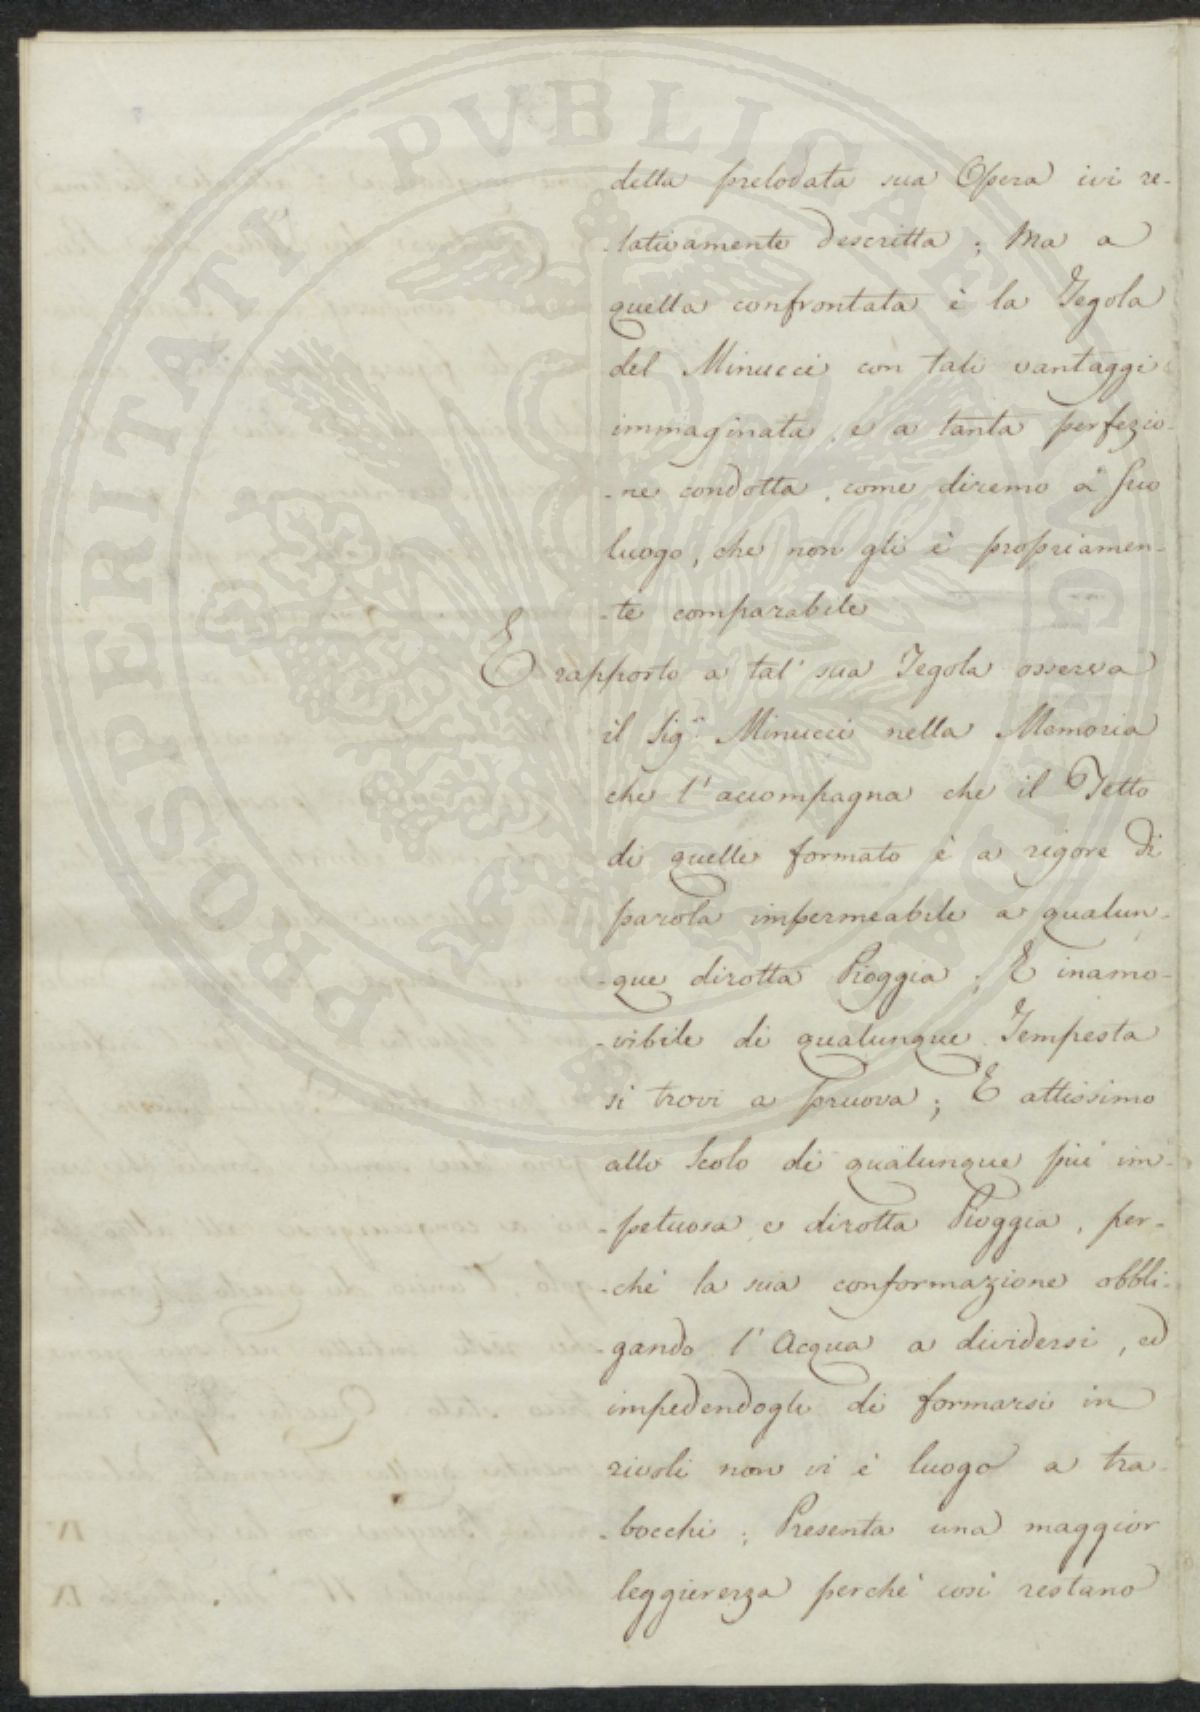 della prelodata sua Opera ivi re-
-lativamente descritta; Ma a
quella confrontata è la Tegola
del Minucci con tali vantaggi
immaginata, e a tanta perfezio-
-ne condotta, come diremo a suo
luogo, che non gli è propriamen-
-te comparabile
E rapporto a tal' sua Tegola osserva
il Sigr. Minucci nella Memoria
che l'accompagna che il Tetto
di quelle formato è a rigore di
parola impermeabile a qualun-
-que dirotta Pioggia; E inamo-
-vibile di qualunque Tempesta
si trovi a pruova; E attissimo
allo Scolo di qualunque più im-
-petuosa e dirotta Pioggia, per-
-chè la sua conformazione obbli-
-gando l'Acqua a dividersi, ed
impedendogli di formarsi in
rivoli non vi è luogo a tra-
-bocchi; Presenta una maggior
leggierezza perchè così restano
PROSPERITATI PVBLICAE AVGENDAE